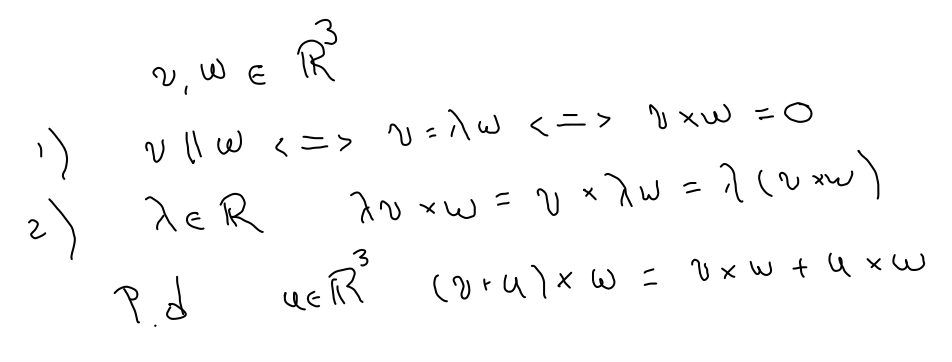 v, w ∈ ℝ³
1) v ∥ w <=> v = λw <=> v × w = 0
2) λ ∈ ℝ λv × w = v × λw = λ(v × w)
P.d u ∈ ℝ³ (v + u) × w = v × w + u × w